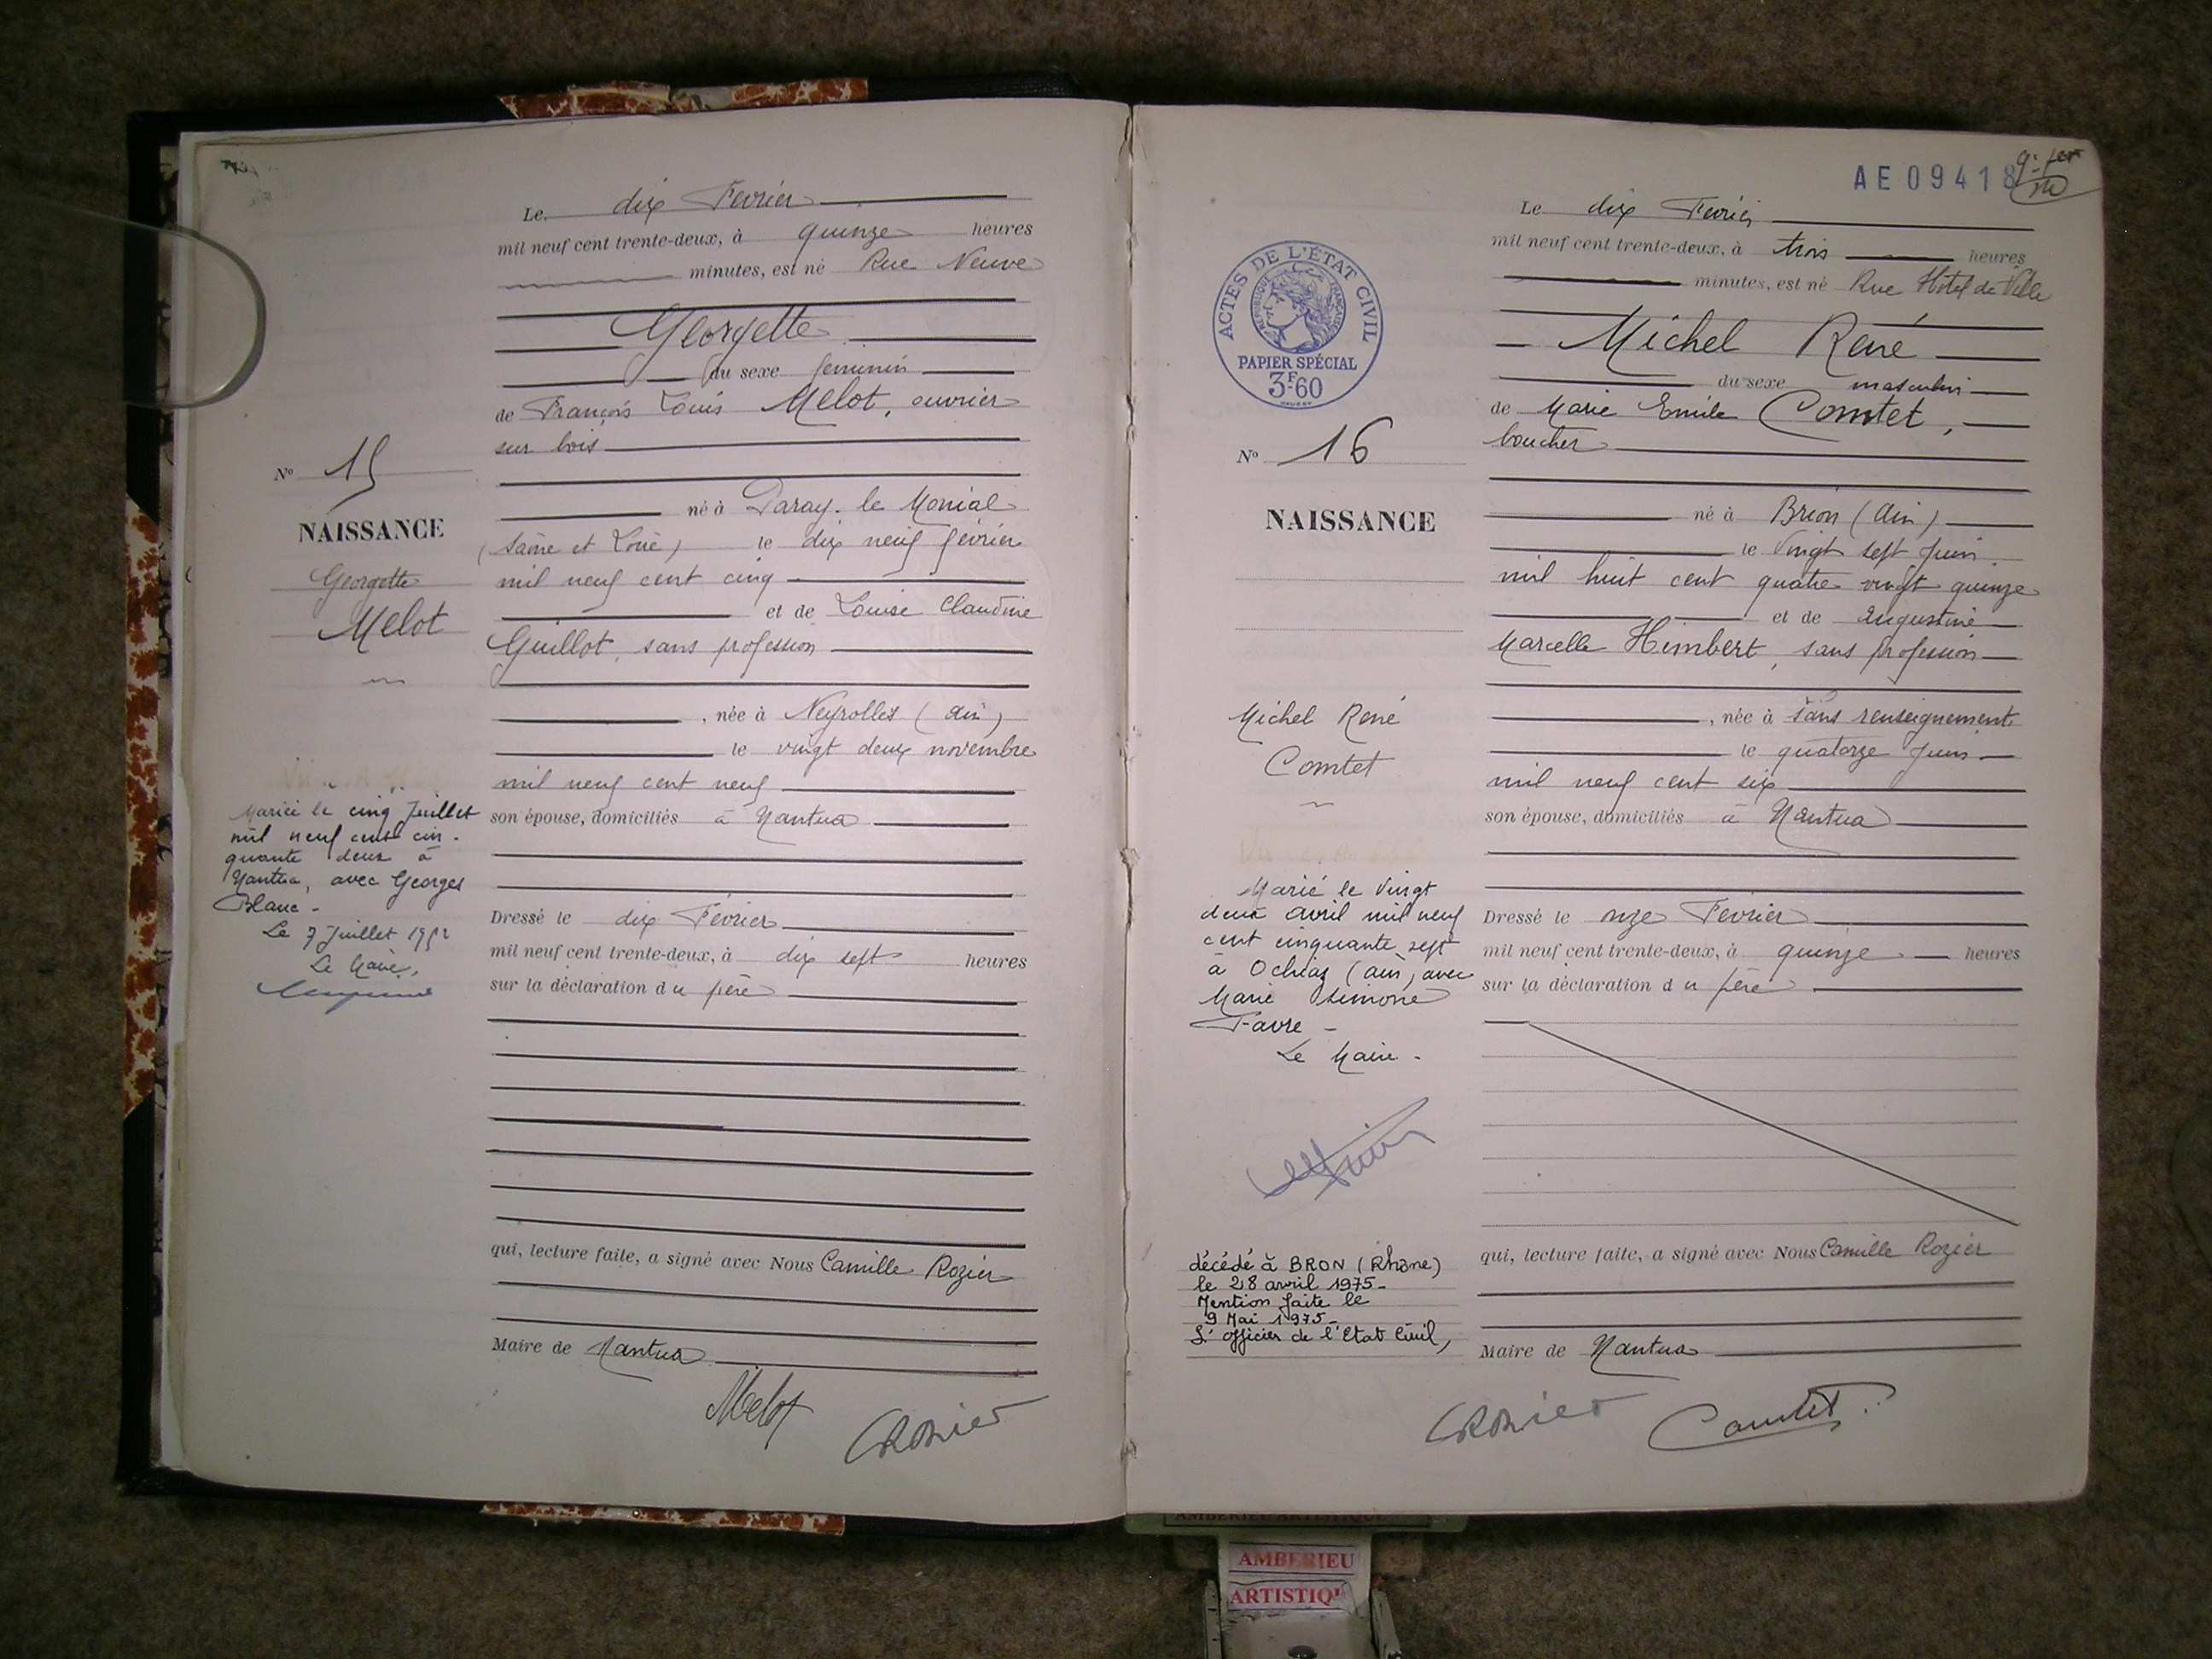 Le dix Fevrier
mil neuf cent trente-deux, à quinze heures
minutes, est né Rue Neuve
Georgette
du sexe feminin
de François Louis Melot, ouvrier
sur bois
né à Paray-le Monial
(Saône et Loire) le dix neuf février
mil neuf cent cinq
et de Louise Claudine
Guillot, sans profession
, née à Neyrolles (ain)
le vingt deux novembre
mil neuf cent neuf
son épouse, domiciliés à Nantua
Dressé le dix Février
mil neuf cent trente-deux, à dix sept heures
sur la déclaration du père
qui, lecture faite, a signé avec Nous Camille Rozier
Maire de Nantua
Melot
CRozier
N° 15
NAISSANCE
Georgette
Melot
Mariée le cinq Juillet
mil neuf cent cin-
quante deux à
Nantua, avec Georges
Blanc -
Le 7 Juillet 1952
Le Maire,
AE 09418
ACTES DE L'ÉTAT CIVIL
RÉPUBLIQUE FRANÇAISE
PAPIER SPÉCIAL
3F60
N° 16
NAISSANCE
Michel René
Comtet
Marié le Vingt
deux avril mil neuf
cent cinquante sept
à Ochiaz (ain), avec
Marie Simone
Favre -
Le Maire -
décédé à BRON (Rhône)
le 28 avril 1975-
Mention faite le
9 Mai 1975-
L'officier de l'Etat Civil,
Le dix Fevrier
mil neuf cent trente-deux, à trois heures
minutes, est né Rue Hôtel de Ville
Michel René
du sexe masculin
de Marie Emile Comtet,
boucher
né à Brion (Ain)
le Vingt sept Juin
mil huit cent quatre vingt quinze
et de Augustine
Marcelle Himbert, sans profession
, née à Sans renseignement
le quatorze Juin
mil neuf cent six
son épouse, domiciliés à Nantua
Dressé le onze Fevrier
mil neuf cent trente-deux, à quinze heures
sur la déclaration du père
qui, lecture faite, a signé avec Nous Camille Rozier
Maire de Nantua
CRozier
Comtet
AMBERIEU ARTISTIQUE
AMBERIEU
ARTISTIQU